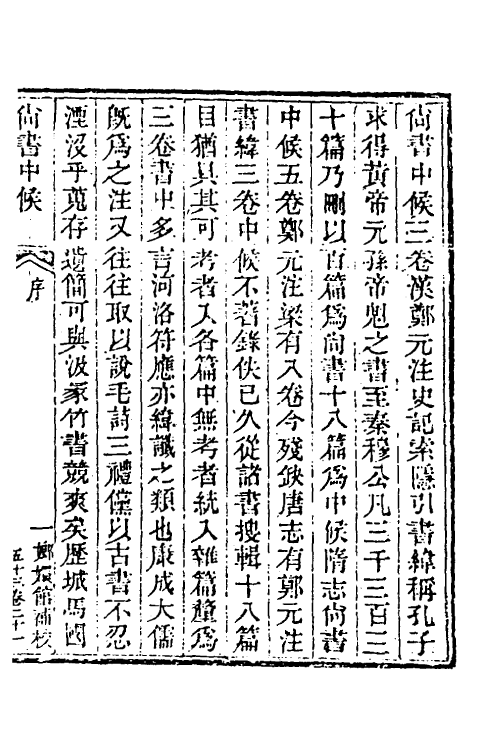 尚書中候三卷漢鄭元注史記索隱引書緯稱孔子
求得黃帝元孫帝魁之書至秦穆公凡三千三百三
十篇乃刪以百篇爲尚書十八篇爲中候隋志尚書
中候五卷鄭元注梁有八卷今殘缺唐志有鄭元注
書緯三卷中候不著錄佚已久從諸書搜輯十八篇
目猶具其可考者入各篇中無考者統入雜篇釐爲
三卷書中多言河洛符應亦緯讖之類也康成大儒
旣爲之注又往往取以說毛詩三禮僅以古書不忍
湮沒乎蒐存遺簡可與汲冢竹書競爽矣歷城馬國
尚書中候
序
一
嫏嬛館補校
五十三卷二十一